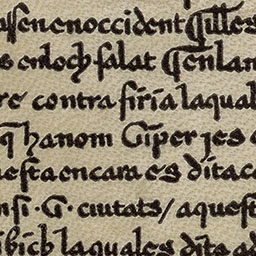 assen en occident Gilles
s en loch salat Gen lan
re contra firia la qual
q̄ ha nom Giper jes e
uesta encara es dita ca
nsi · G · ciutats / aquest
ibich la quales dita ad